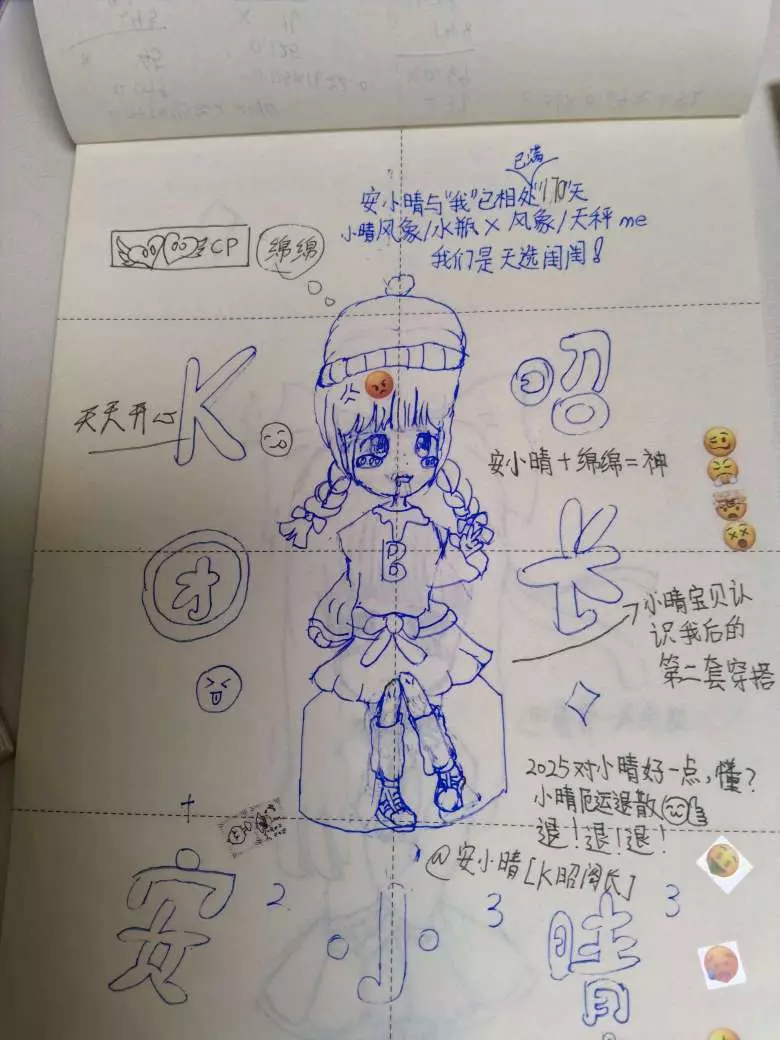 已满
安小晴与"我"已相处"170"天
小晴风象/水瓶×风象/天秤me
我们是天选闺闺!
CP
绵绵
K
昭
天天开心
安小晴+绵绵=神
B
长
小晴宝贝认
识我后的
第二套穿搭
2025对小晴好一点,懂?
小晴厄运退散
退!退!退!
@安小晴[K昭阁长]
安
2
小
3
晴
3